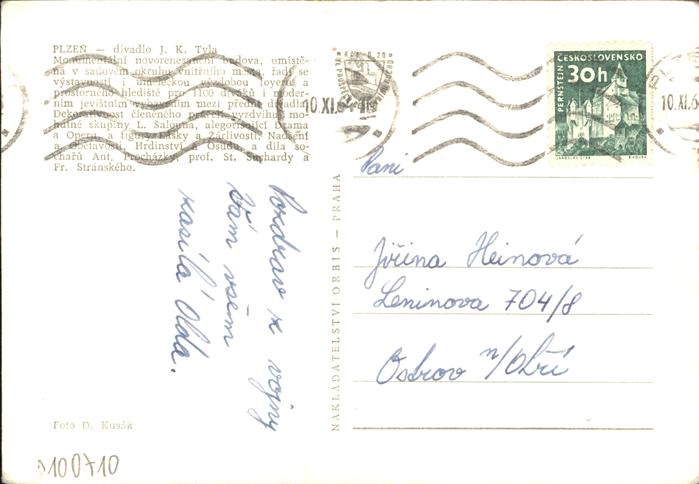 PLZEŇ — divadlo J. K. Tyla
Monumentální novorenesanční budova, umístě-
ná v sadovém okruhu vnitřního města, řadí se
výstavností i uměleckou výzdobou
prostorného hlediště pro 1100 diváků i moder-
ním jevištním vybavením mezi přední divadla.
Dekorativnost členěného průčelí vyzdvihují mo-
hutné skupiny L. Šalouna, alegorisující Drama
a Operu, a figury Lásky a Žárlivosti, Nadšení
a Obětavosti, Hrdinství a Osudu, a díla so-
chařů Ant. Procházky, prof. St. Suchardy a
Fr. Stránského.
Pozdrav z vojny
Vám všem
zasílá Olda.
Foto D. Kusák
0100710
NAKLADATELSTVÍ ORBIS — PRAHA
10.XI.6
ČESKOSLOVENSKO
30h
PERNŠTEJN
10.XI.6
Paní
Jiřina Heinová
Leninova 704/8
Ostrov n/Ohří